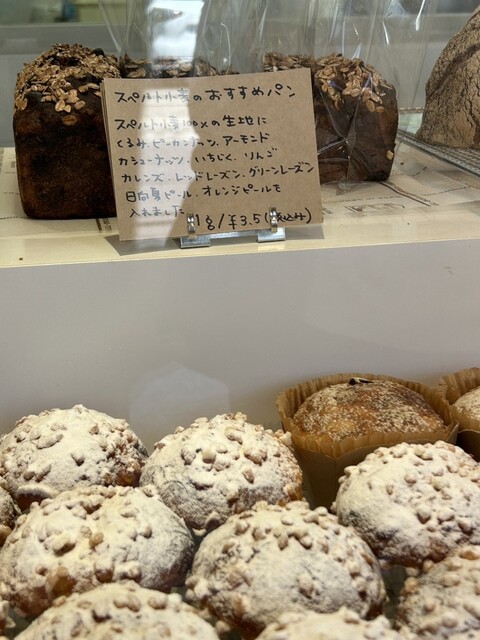 スペルト小麦のおすすめパン
スペルト小麦100%の生地に
くるみ、ピーカンナッツ、アーモンド
カシューナッツ、いちじく、りんご
カレンズ、レッドレーズン、グリーンレーズン
日向夏ピール、オレンジピールを
入れました 1g/¥3.5(税込み)